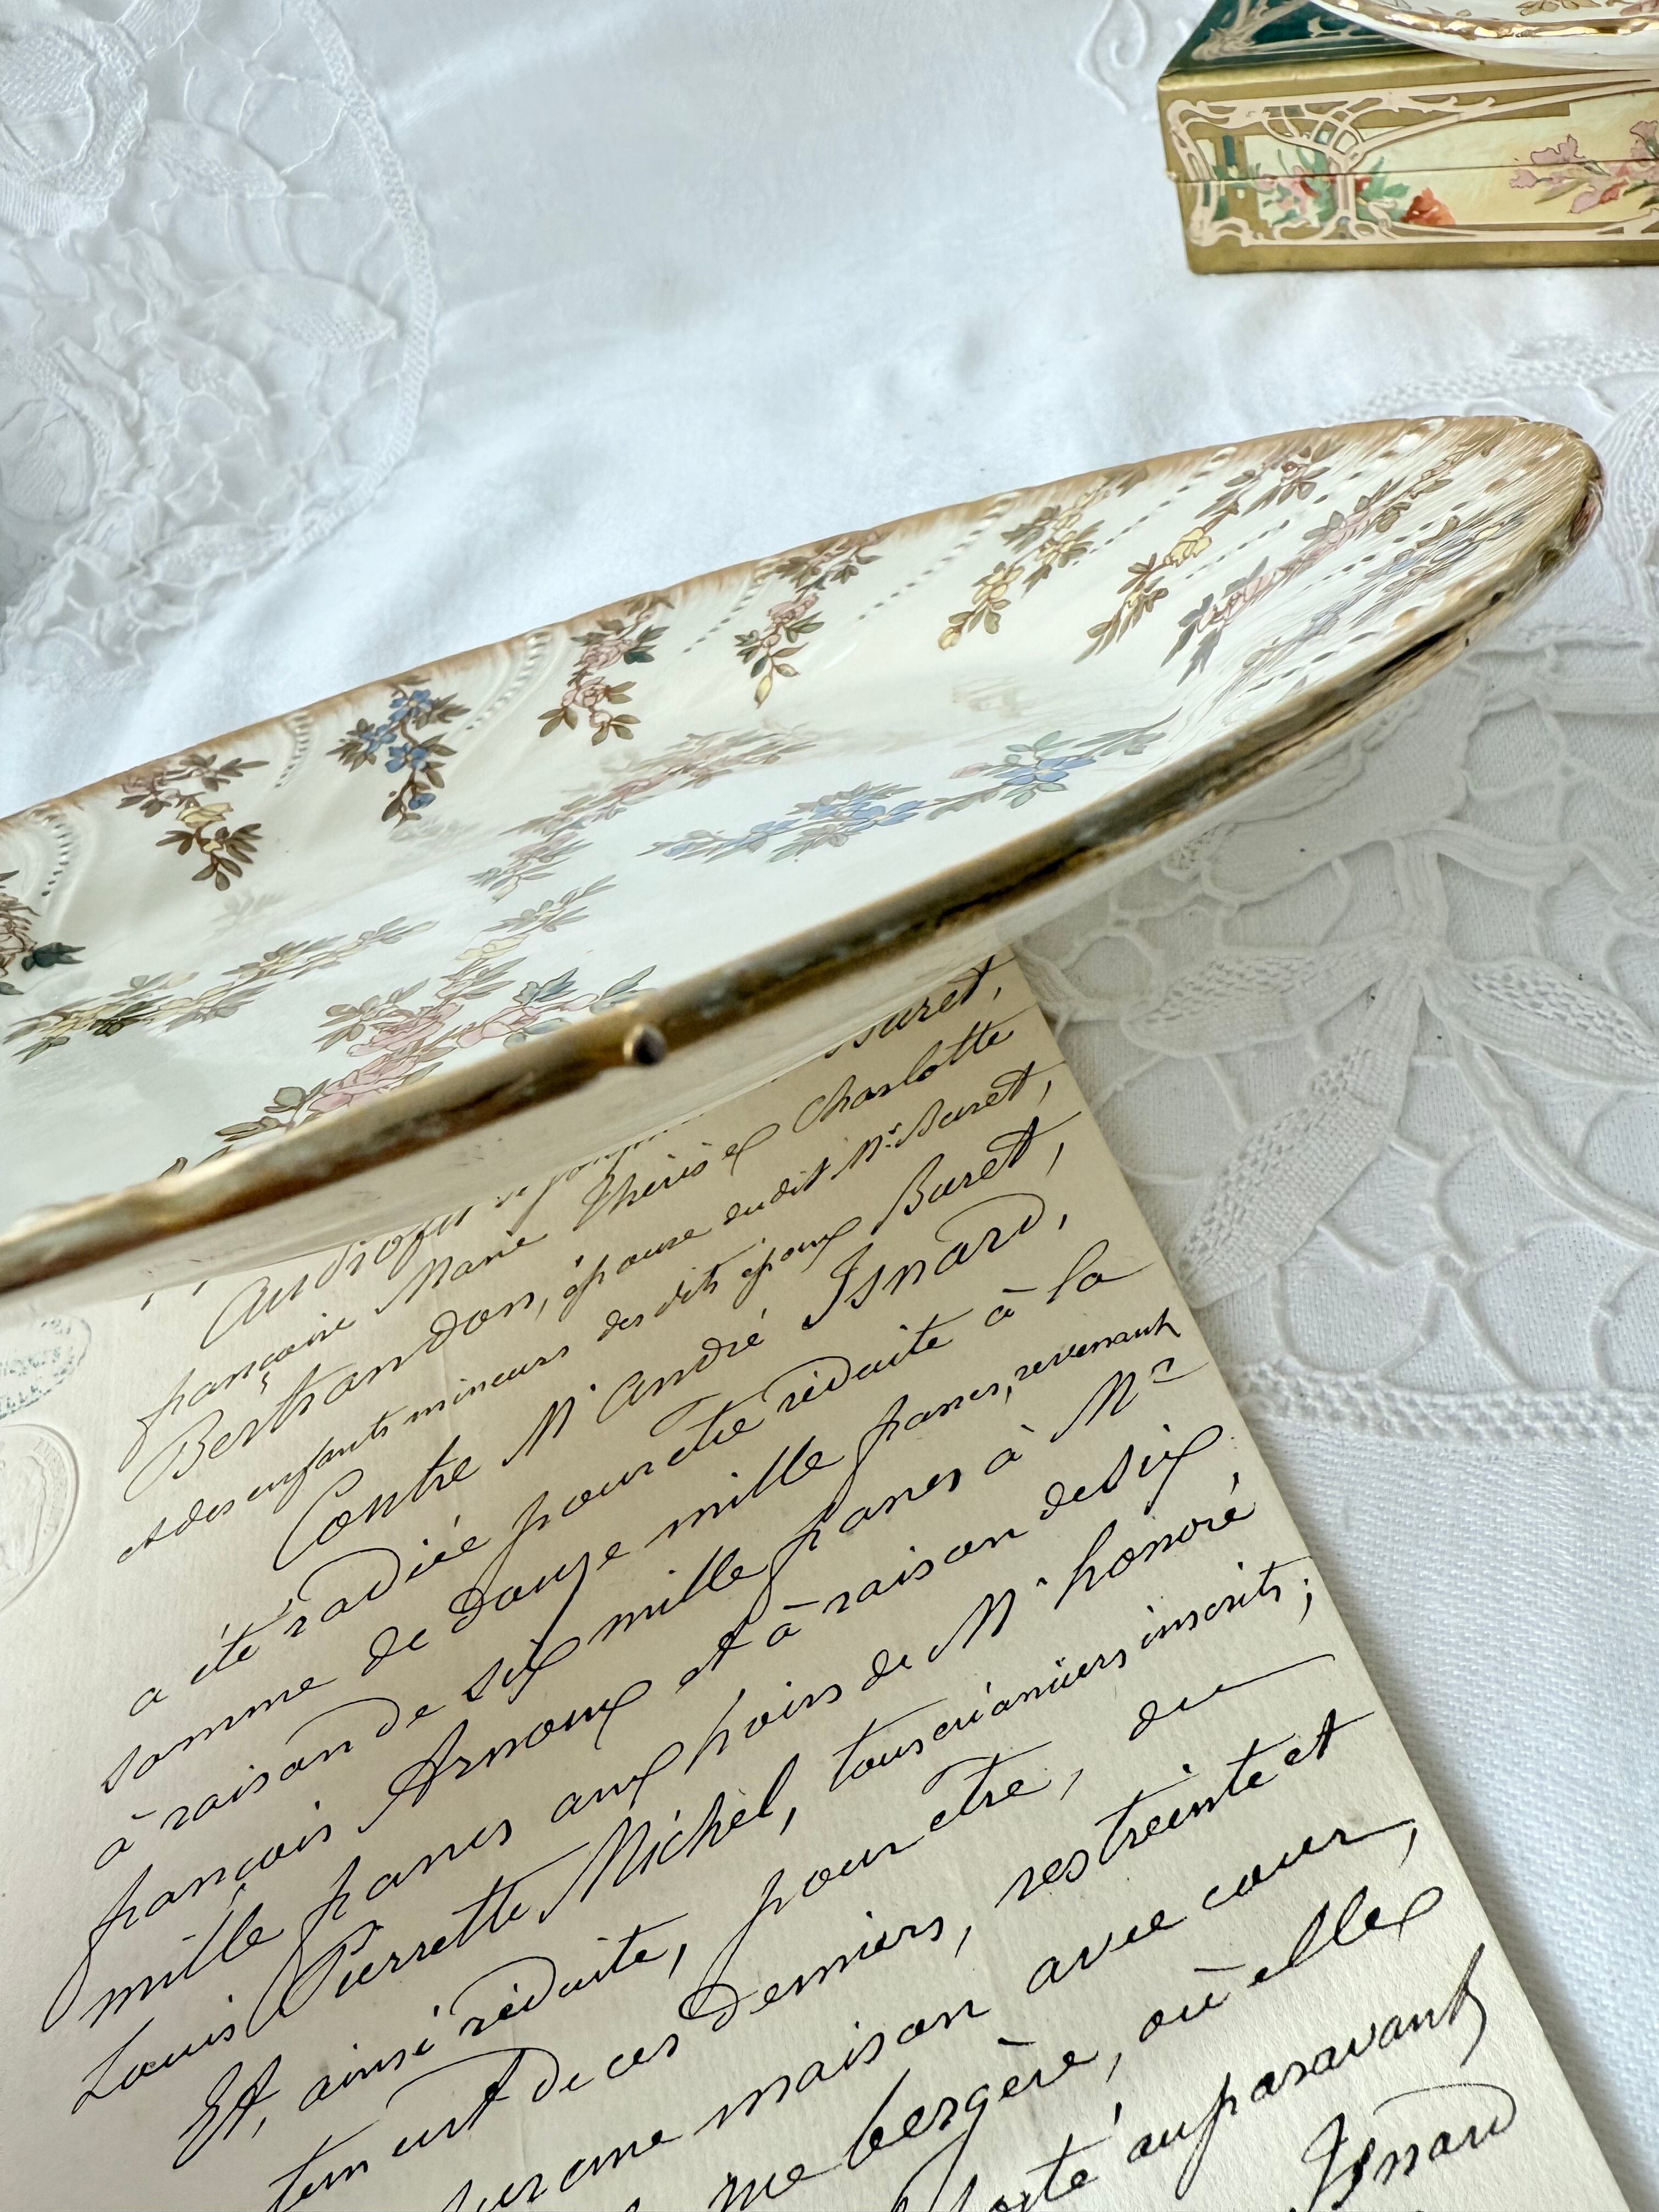 Buret,
Au profit
françoise Marie Thérèse Charlotte
Bertrandon, épouse du dit Mr. Buret,
et des enfants mineurs des dits époux Buret,
Contre Mr André Isnard,
a été radiée pour être réduite à la
somme de douze mille francs, revenant
à raison de six mille francs à Mr
françois Arnoux et à raison de six
mille francs aux hoirs de Mr honoré
Louis Pierrette Michel, tous créanciers inscrits;
Et, ainsi réduite, pour être, du
de ces derniers, restreinte et
sur une maison avec cour,
rue bergère, où elle
porté auparavant
Isnard